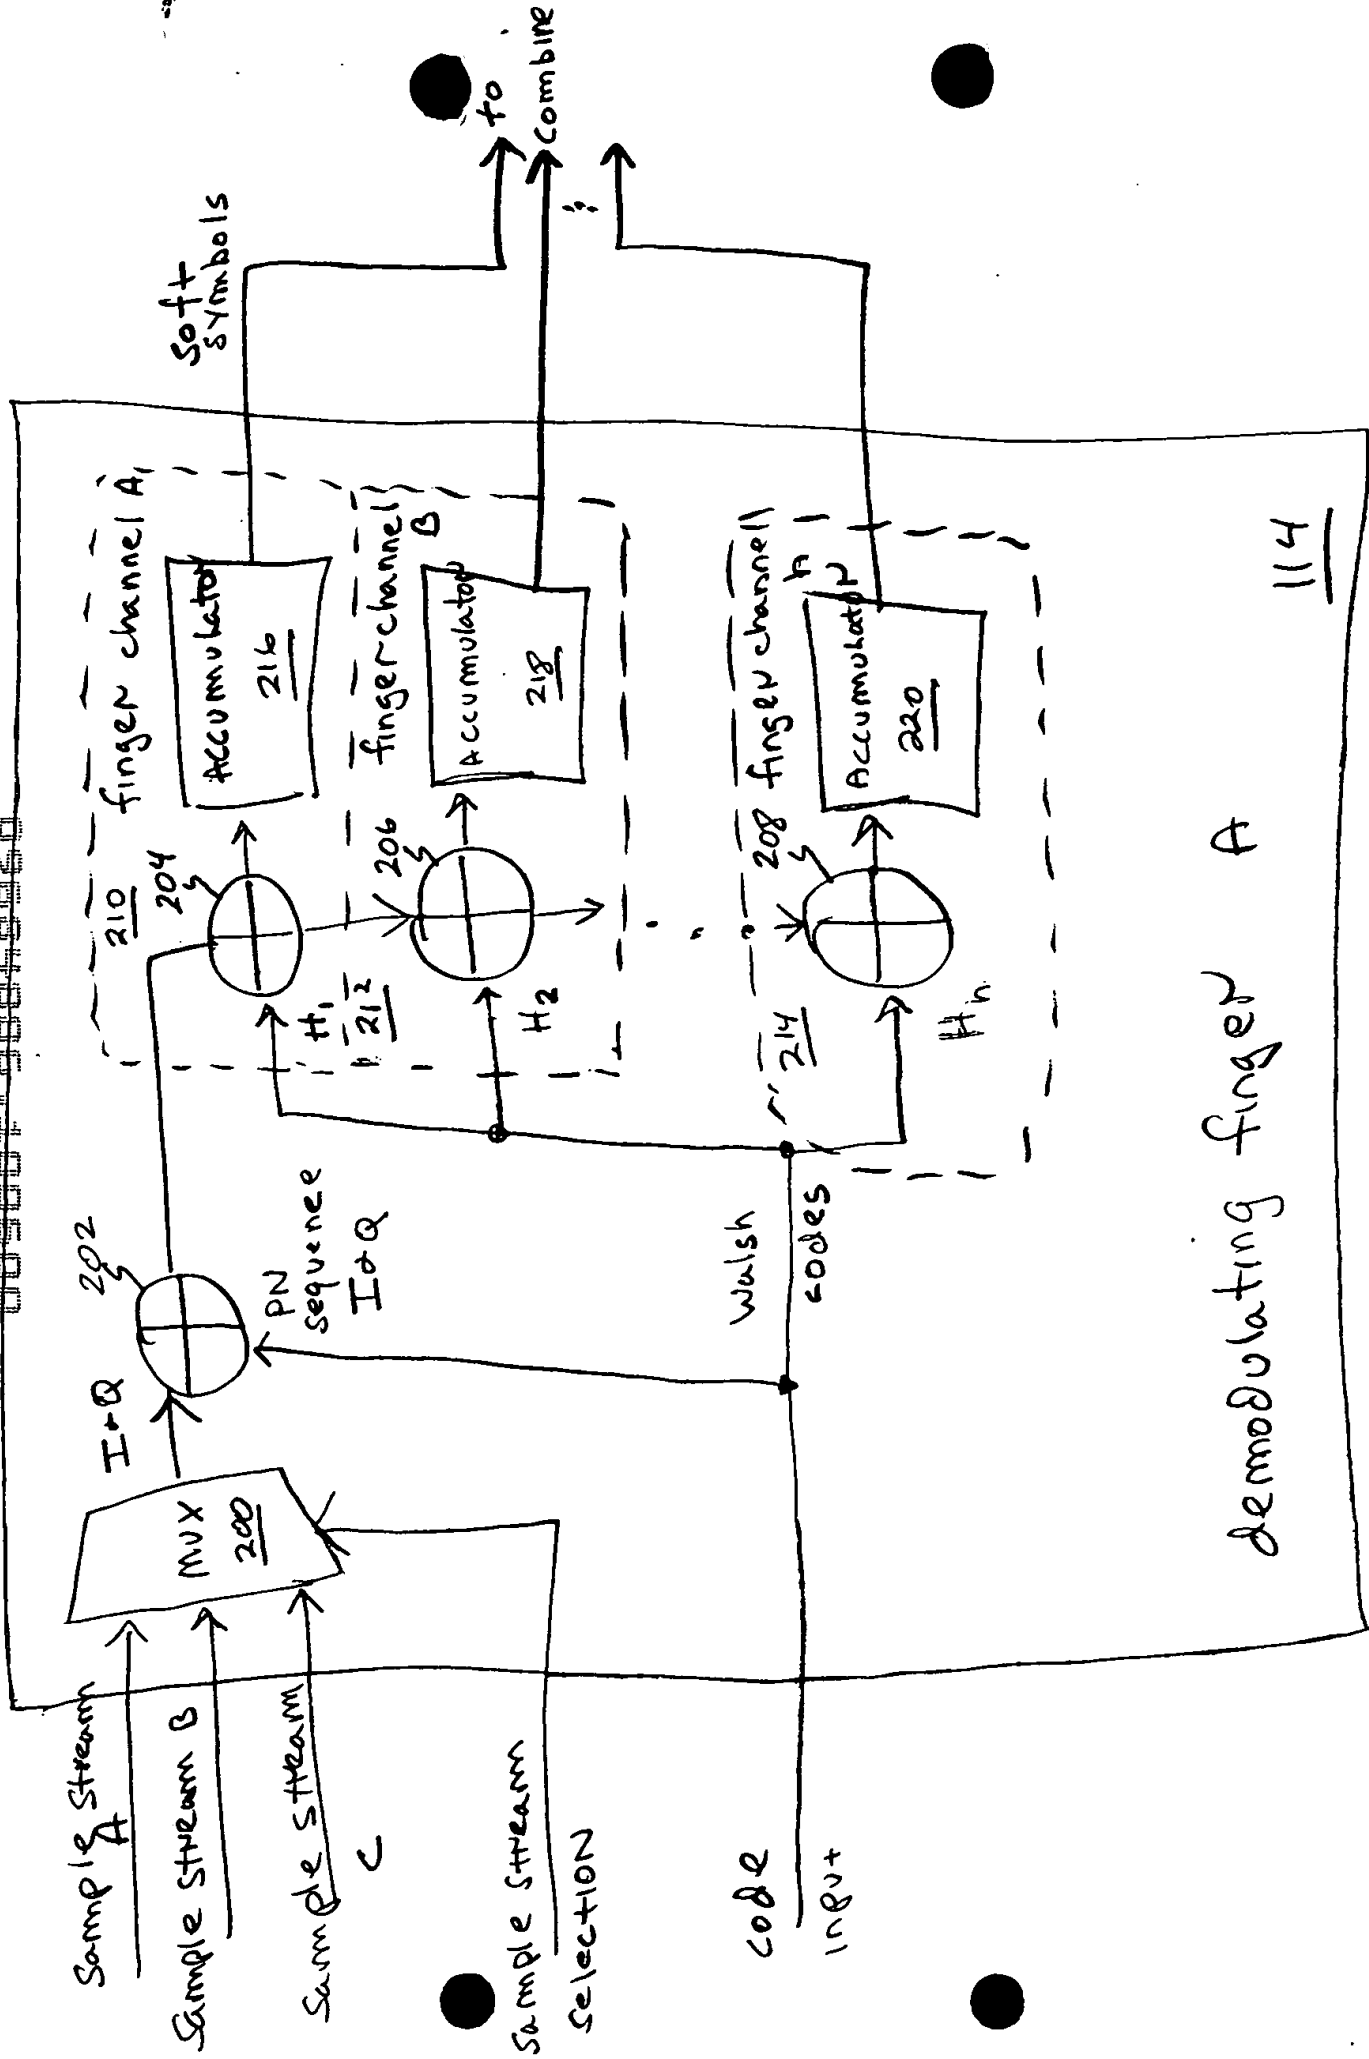 Sample Stream
A
Sample Stream B
Sample Stream
C
Sample Stream
Selection
Code
Input
MUX
200
I+Q
202
PN
sequence
I+Q
Walsh
codes
210
finger channel A,
204
H1
Accumulator
216
Soft
symbols
212
finger channel
B
206
H2
Accumulator
218
214
208
finger channel
n
Hn
Accumulator
220
to
Combine
demodulating finger A
114